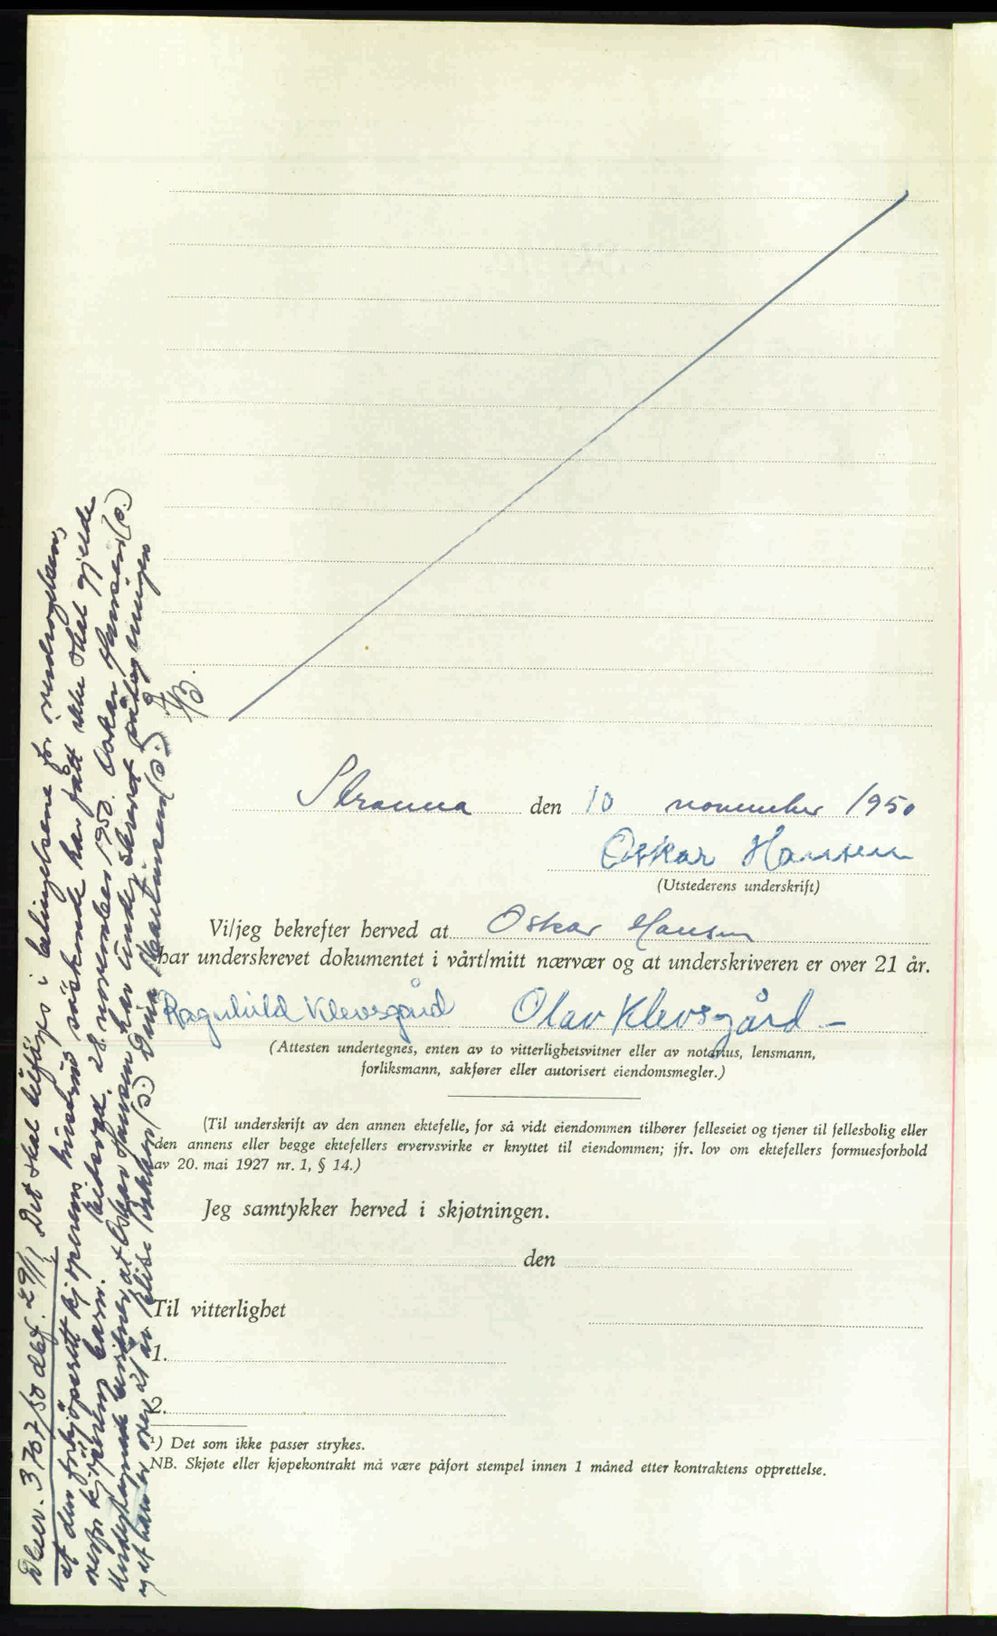 Stranna den 10 november 1950
Oskar Hansen
(Utstederens underskrift)
Vi/jeg bekrefter herved at Oskar Hansen
har underskrevet dokumentet i vårt/mitt nærvær og at underskriveren er over 21 år.
Ragnhild Klevsgård Olav Klevsgård –
(Attesten undertegnes, enten av to vitterlighetsvitner eller av notarius, lensmann,
forliksmann, sakfører eller autorisert eiendomsmegler.)
(Til underskrift av den annen ektefelle, for så vidt eiendommen tilhører felleseiet og tjener til fellesbolig eller
den annens eller begge ektefellers ervervsvirke er knyttet til eiendommen; jfr. lov om ektefellers formuesforhold
av 20. mai 1927 nr. 1, § 14.)
Jeg samtykker herved i skjøtningen.
den
Til vitterlighet
1.
2.
¹) Det som ikke passer strykes.
NB. Skjøte eller kjøpekontrakt må være påført stempel innen 1 måned etter kontraktens opprettelse.
3707/50 29/11 Det skal tilføyes i betingelsene for
at den forkjøpsrett kjøperens søskende har fått ikke skal gjelde
overfor kjøperens barn. 28 november 1950. Oskar Hansen (s.)
Undertegnede vitner at Oskar Hansen har underskrevet
og at han er over 21 år Martinsen (s.)